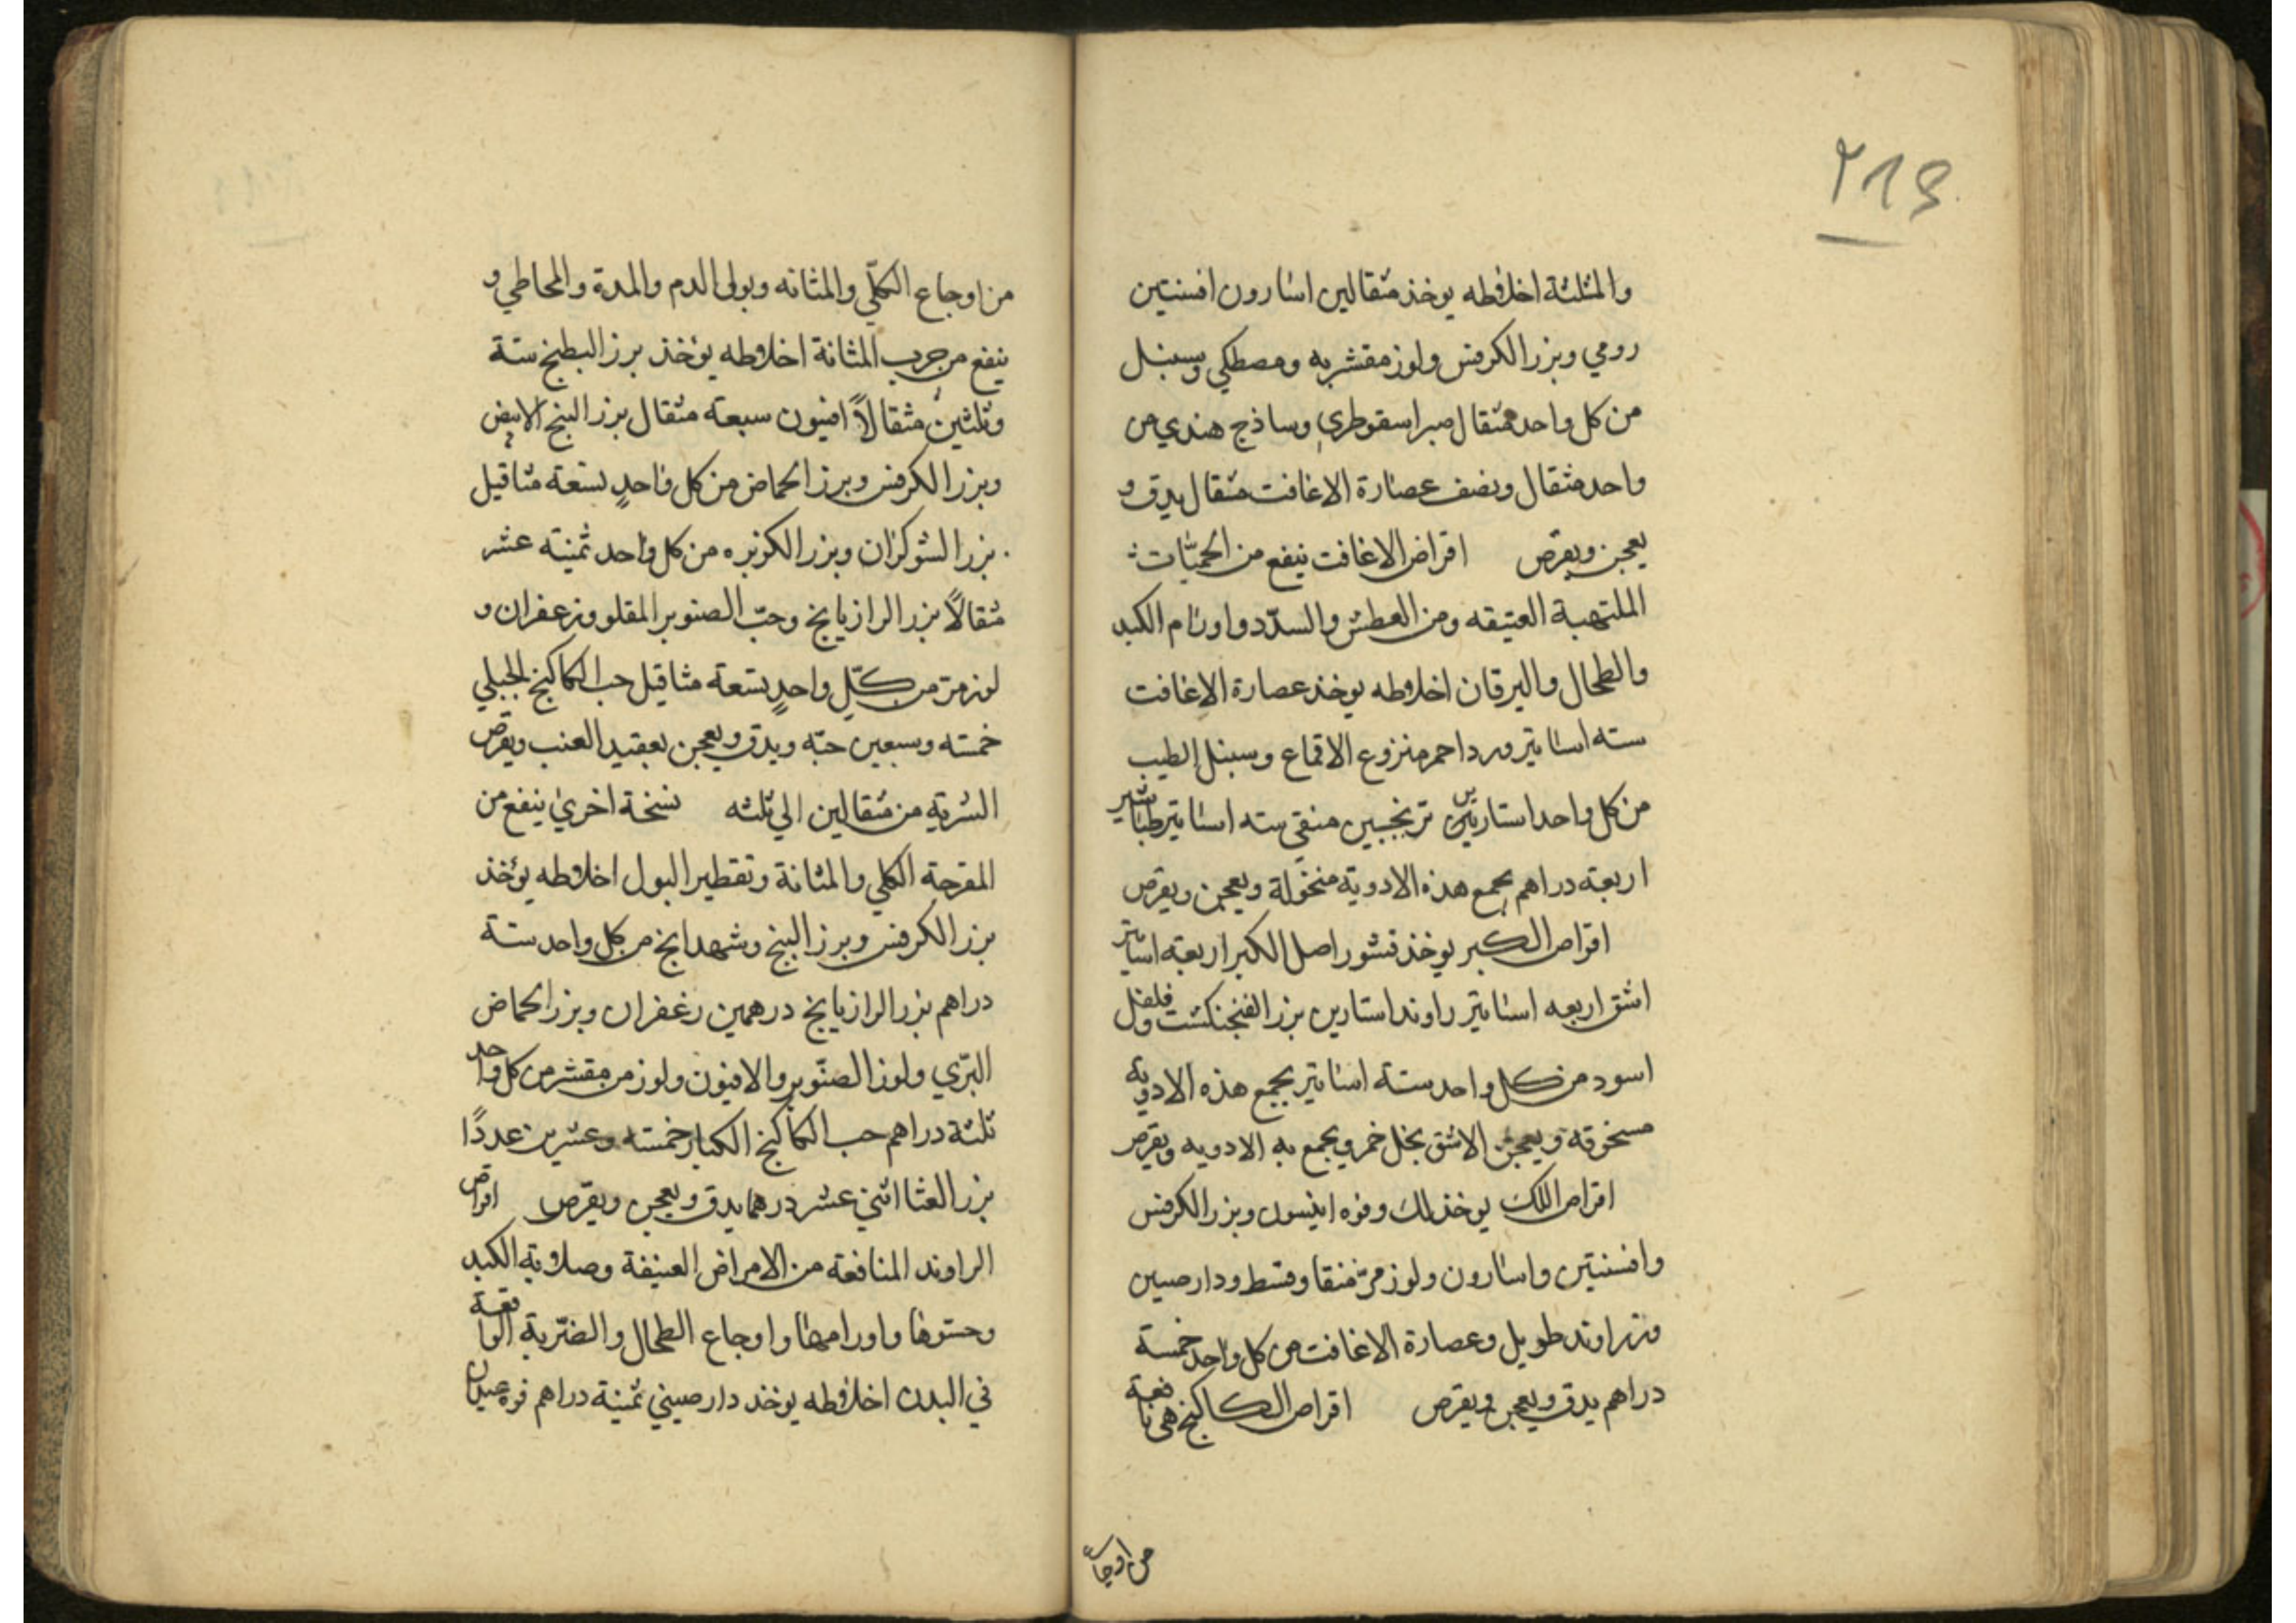 ٢١٤
والمثلثة اخلاطه يوخذ مثقالين اسارون افسنتين
رومي وبزر الكرفس ولوز مقشر به ومصطكي وسنبل
من كل واحد مثقال صبر اسقوطري وساذج هندي من
واحد مثقال ونصف عصارة الاغافت مثقال يدق و
يعجن ويقرص اقراض الاغافت ينفع من الحميّات
الملتهبة العتيقه ومن العطش والسدّد واورام الكبد
والطحال واليرقان اخلاطه يوخذ عصارة الاغافت
سته اساتير ورد احمر منزوع الاقماع وسنبل الطيب
من كل واحد استارين ترنجبين منقي سته اساتير طباشير
اربعة دراهم يجمع هذه الادوية منخولة ويعجن ويقرص
اقراص الكبر يوخذ قشور اصل الكبر اربعة اساتير
اشق اربعه اساتير راوند استارين بزر الفنجنكشت وفلفل
اسود من كل واحد ستة اساتير يجمع هذه الادوية
مسحوقة ويعجن الاشق بخل خمر ويجمع به الادويه ويقرص
اقراص اللك يوخذ لك وفوه انيسون وبزر الكرفس
وافسنتين واسارون ولوز مرّ منقا وقسط ودارصين
وزراوند طويل وعصارة الاغافت من كل واحد خمسة
دراهم يدق ويعجن ويقرص اقراص الكاكنج هى نافعة
من اوجا
من اوجاع الكلّي والمثانه وبولى الدم والمدة والمخاطي و
ينفع من جرب المثانة اخلاطه يؤخذ بزر البطيخ ستة
وثلثين مثقالاً افيون سبعة مثقال بزر البنج الابيض
وبزر الكرفس وبزر الحماض من كل واحدٍ تسعة مثاقيل
بزر الشوكران وبزر الكزبره من كل واحد ثمنية عشر
مثقالاً بزر الرازيانج وحبّ الصنوبر المقلو وزعفران و
لوز مر من كلّ واحدٍ تسعة مثاقيل حب الكاكنج الجبلي
خمسته وسبعين حبّه ويدق ويعجن بعقيد العنب ويقرص
الشربة من مثقالين الي ثلثه نسخة اخري ينفع من
المقرحة الكلي والمثانة وتقطير البول اخلاطه يؤخذ
بزر الكرفس وبزر البنج وشهدانج من كل واحد ستة
دراهم بزر الرازيانج درهمين زعفران وبزر الحماض
البرّي ولوز الصنّوبر والافيون ولوز مر مقشر من كل واحد
ثلثة دراهم حب الكاكنج الكبار خمسته وعشرين عددًا
بزر القثا اثني عشر درهما يدق ويعجن ويقرص اقراص
الراوند المنافعة من الامراض العنيفة وصلابة الكبد
وحستوها واورامها واوجاع الطحال والضّربة الواقعة
في البدن اخلاطه يوخذ دارصيني ثمنية دراهم فوة عيدان